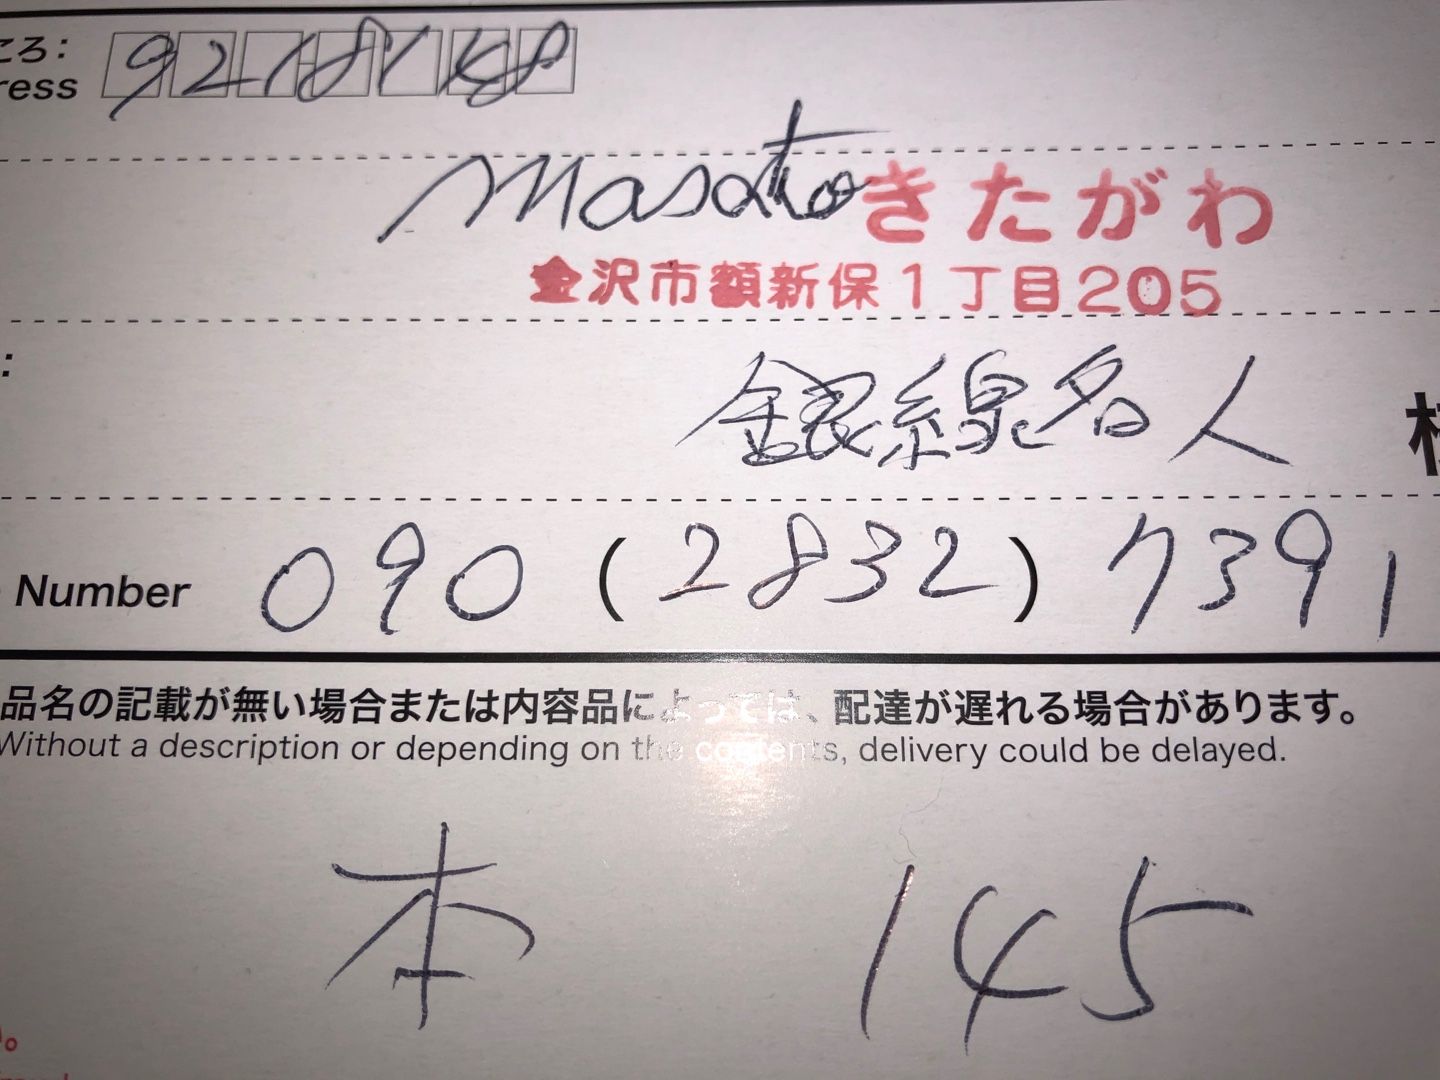 ころ:
ress 9218148
Masato きたがわ
金沢市額新保1丁目205
:
銀線名人
Number 090 (2832) 7391
品名の記載が無い場合または内容品によっては、配達が遅れる場合があります。
Without a description or depending on the contents, delivery could be delayed.
本 145
。